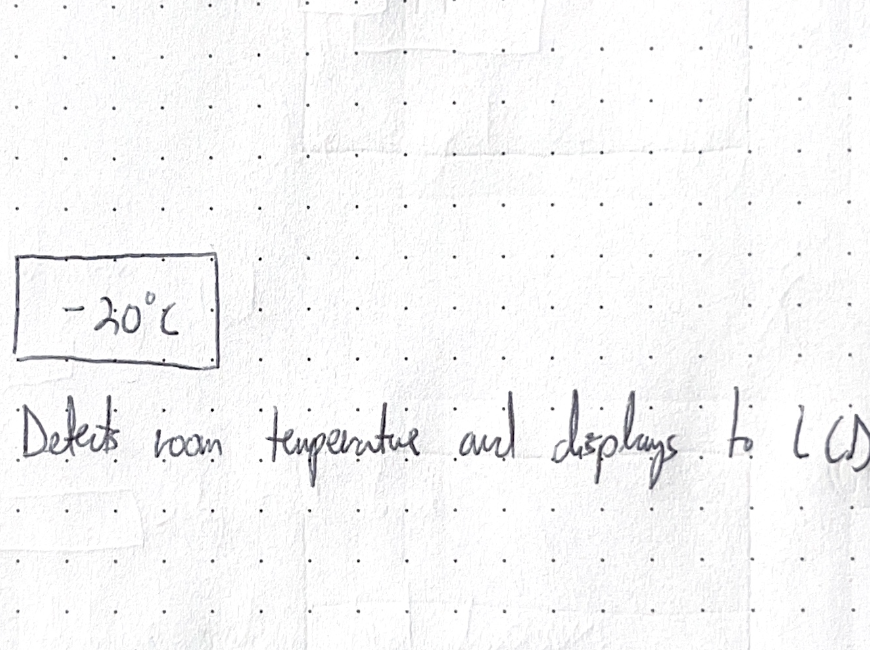 -20°C
Detects room temperature and displays to LCD